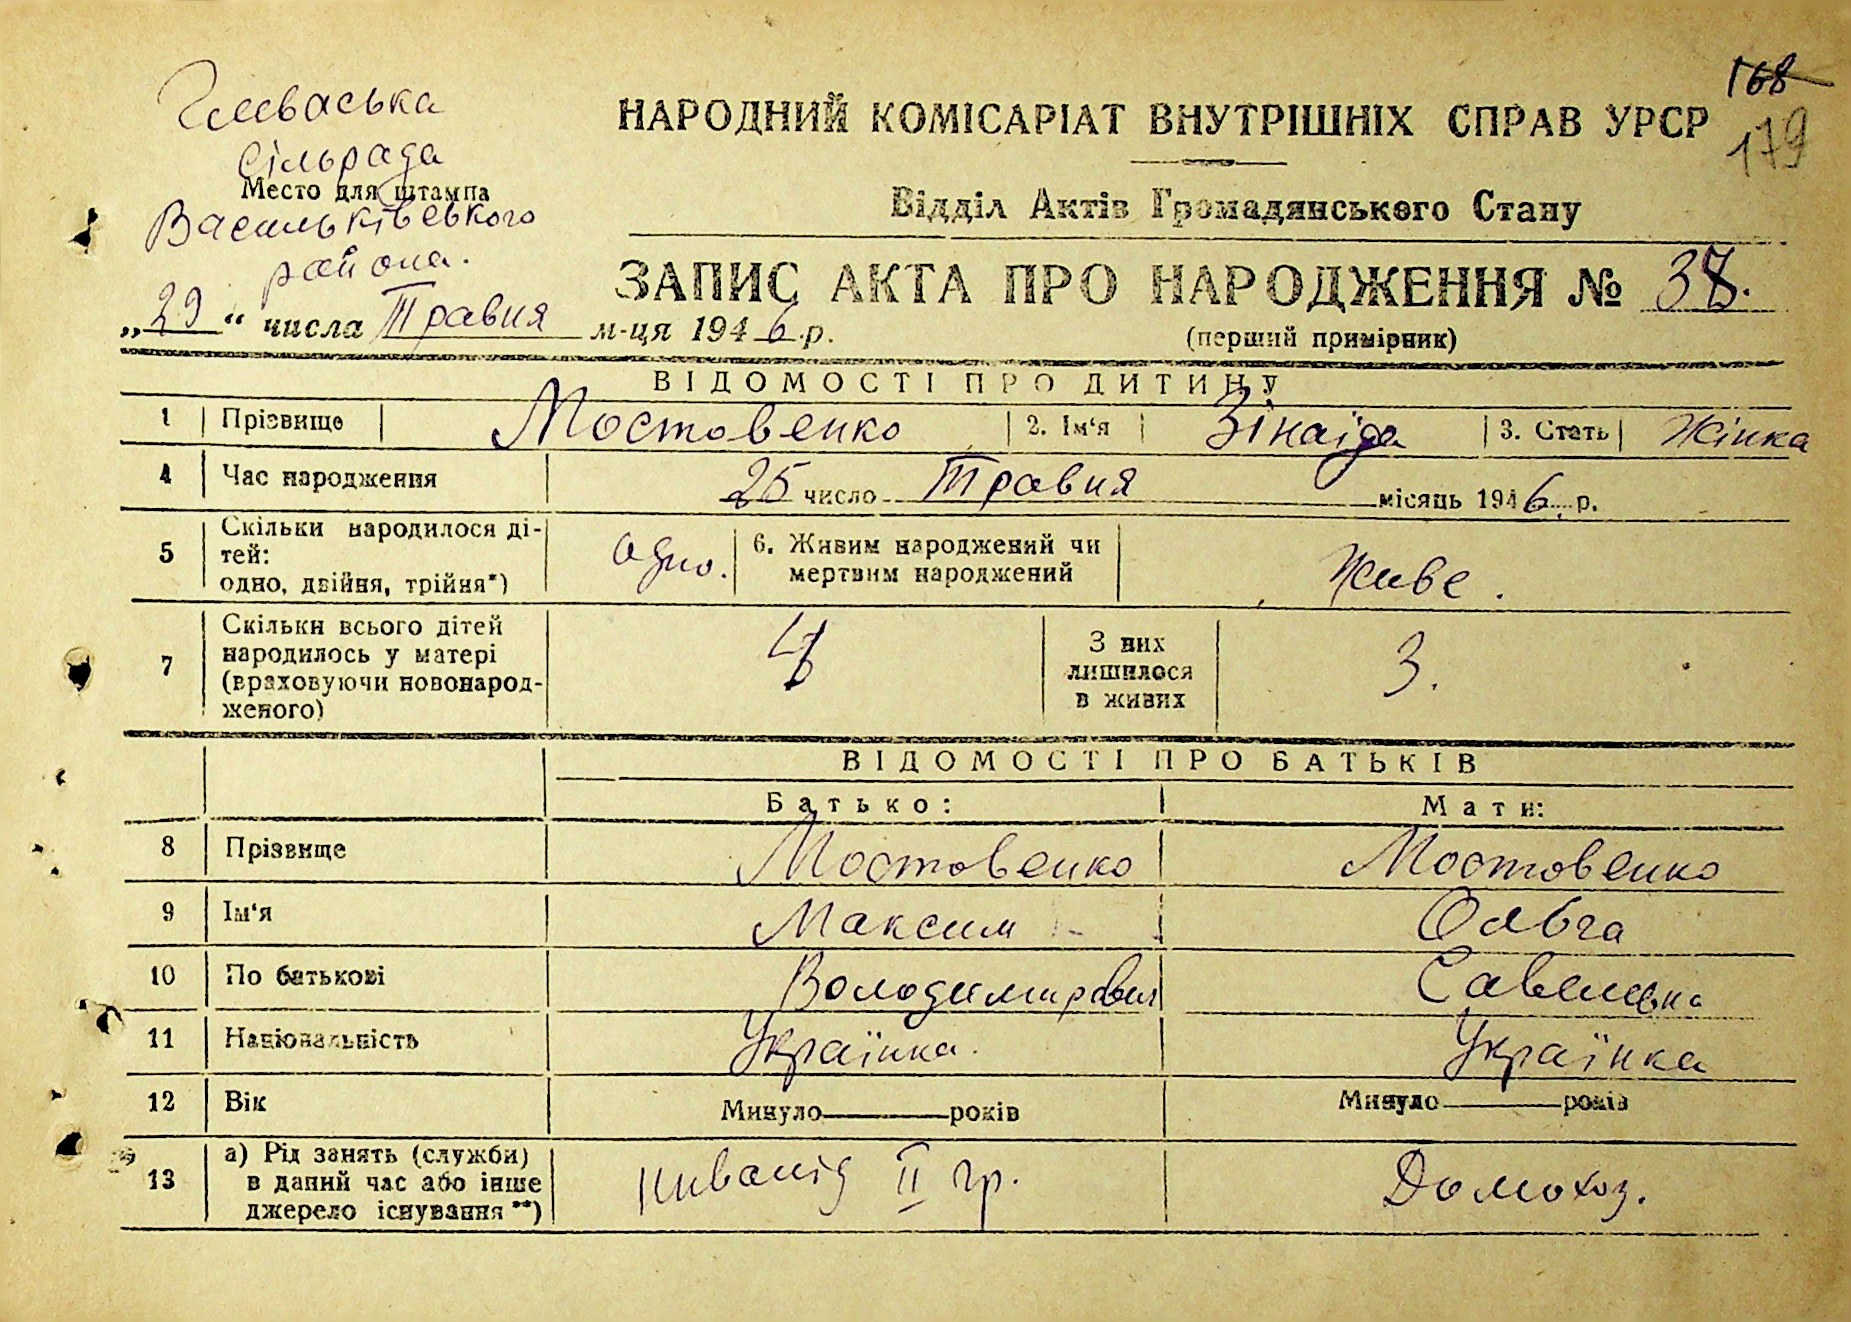 168
179
Глеваська
сільрада
Место для штампа
Васильківського
района.
НАРОДНИЙ КОМІСАРІАТ ВНУТРІШНІХ СПРАВ УРСР
Відділ Актів Громадянського Стану
ЗАПИС АКТА ПРО НАРОДЖЕННЯ № 38.
(перший примірник)
„29“ числа Травня м-ця 1946 р.
ВІДОМОСТІ ПРО ДИТИНУ
1 Прізвище Мостовенко 2. Ім‘я Зінаїда 3. Стать Жінка
4 Час народження 25 число Травня місяць 1946 р.
5 Скільки народилося ді-
тей:
одно, двійня, трійня*) одно. 6. Живим народжений чи
мертвим народжений Живе.
7 Скільки всього дітей
народилось у матері
(враховуючи новонарод-
женого) 4 З них
лишилося
в живих 3.
ВІДОМОСТІ ПРО БАТЬКІВ
Батько: Мати:
8 Прізвище Мостовенко Мостовенко
9 Ім‘я Максим Ольга
10 По батькові Володимирович Савелівна
11 Національність Українка. Українка
12 Вік Минуло років Минуло років
13 а) Рід занять (служби)
в даний час або інше
джерело існування**) инвалід II гр. Домохоз.